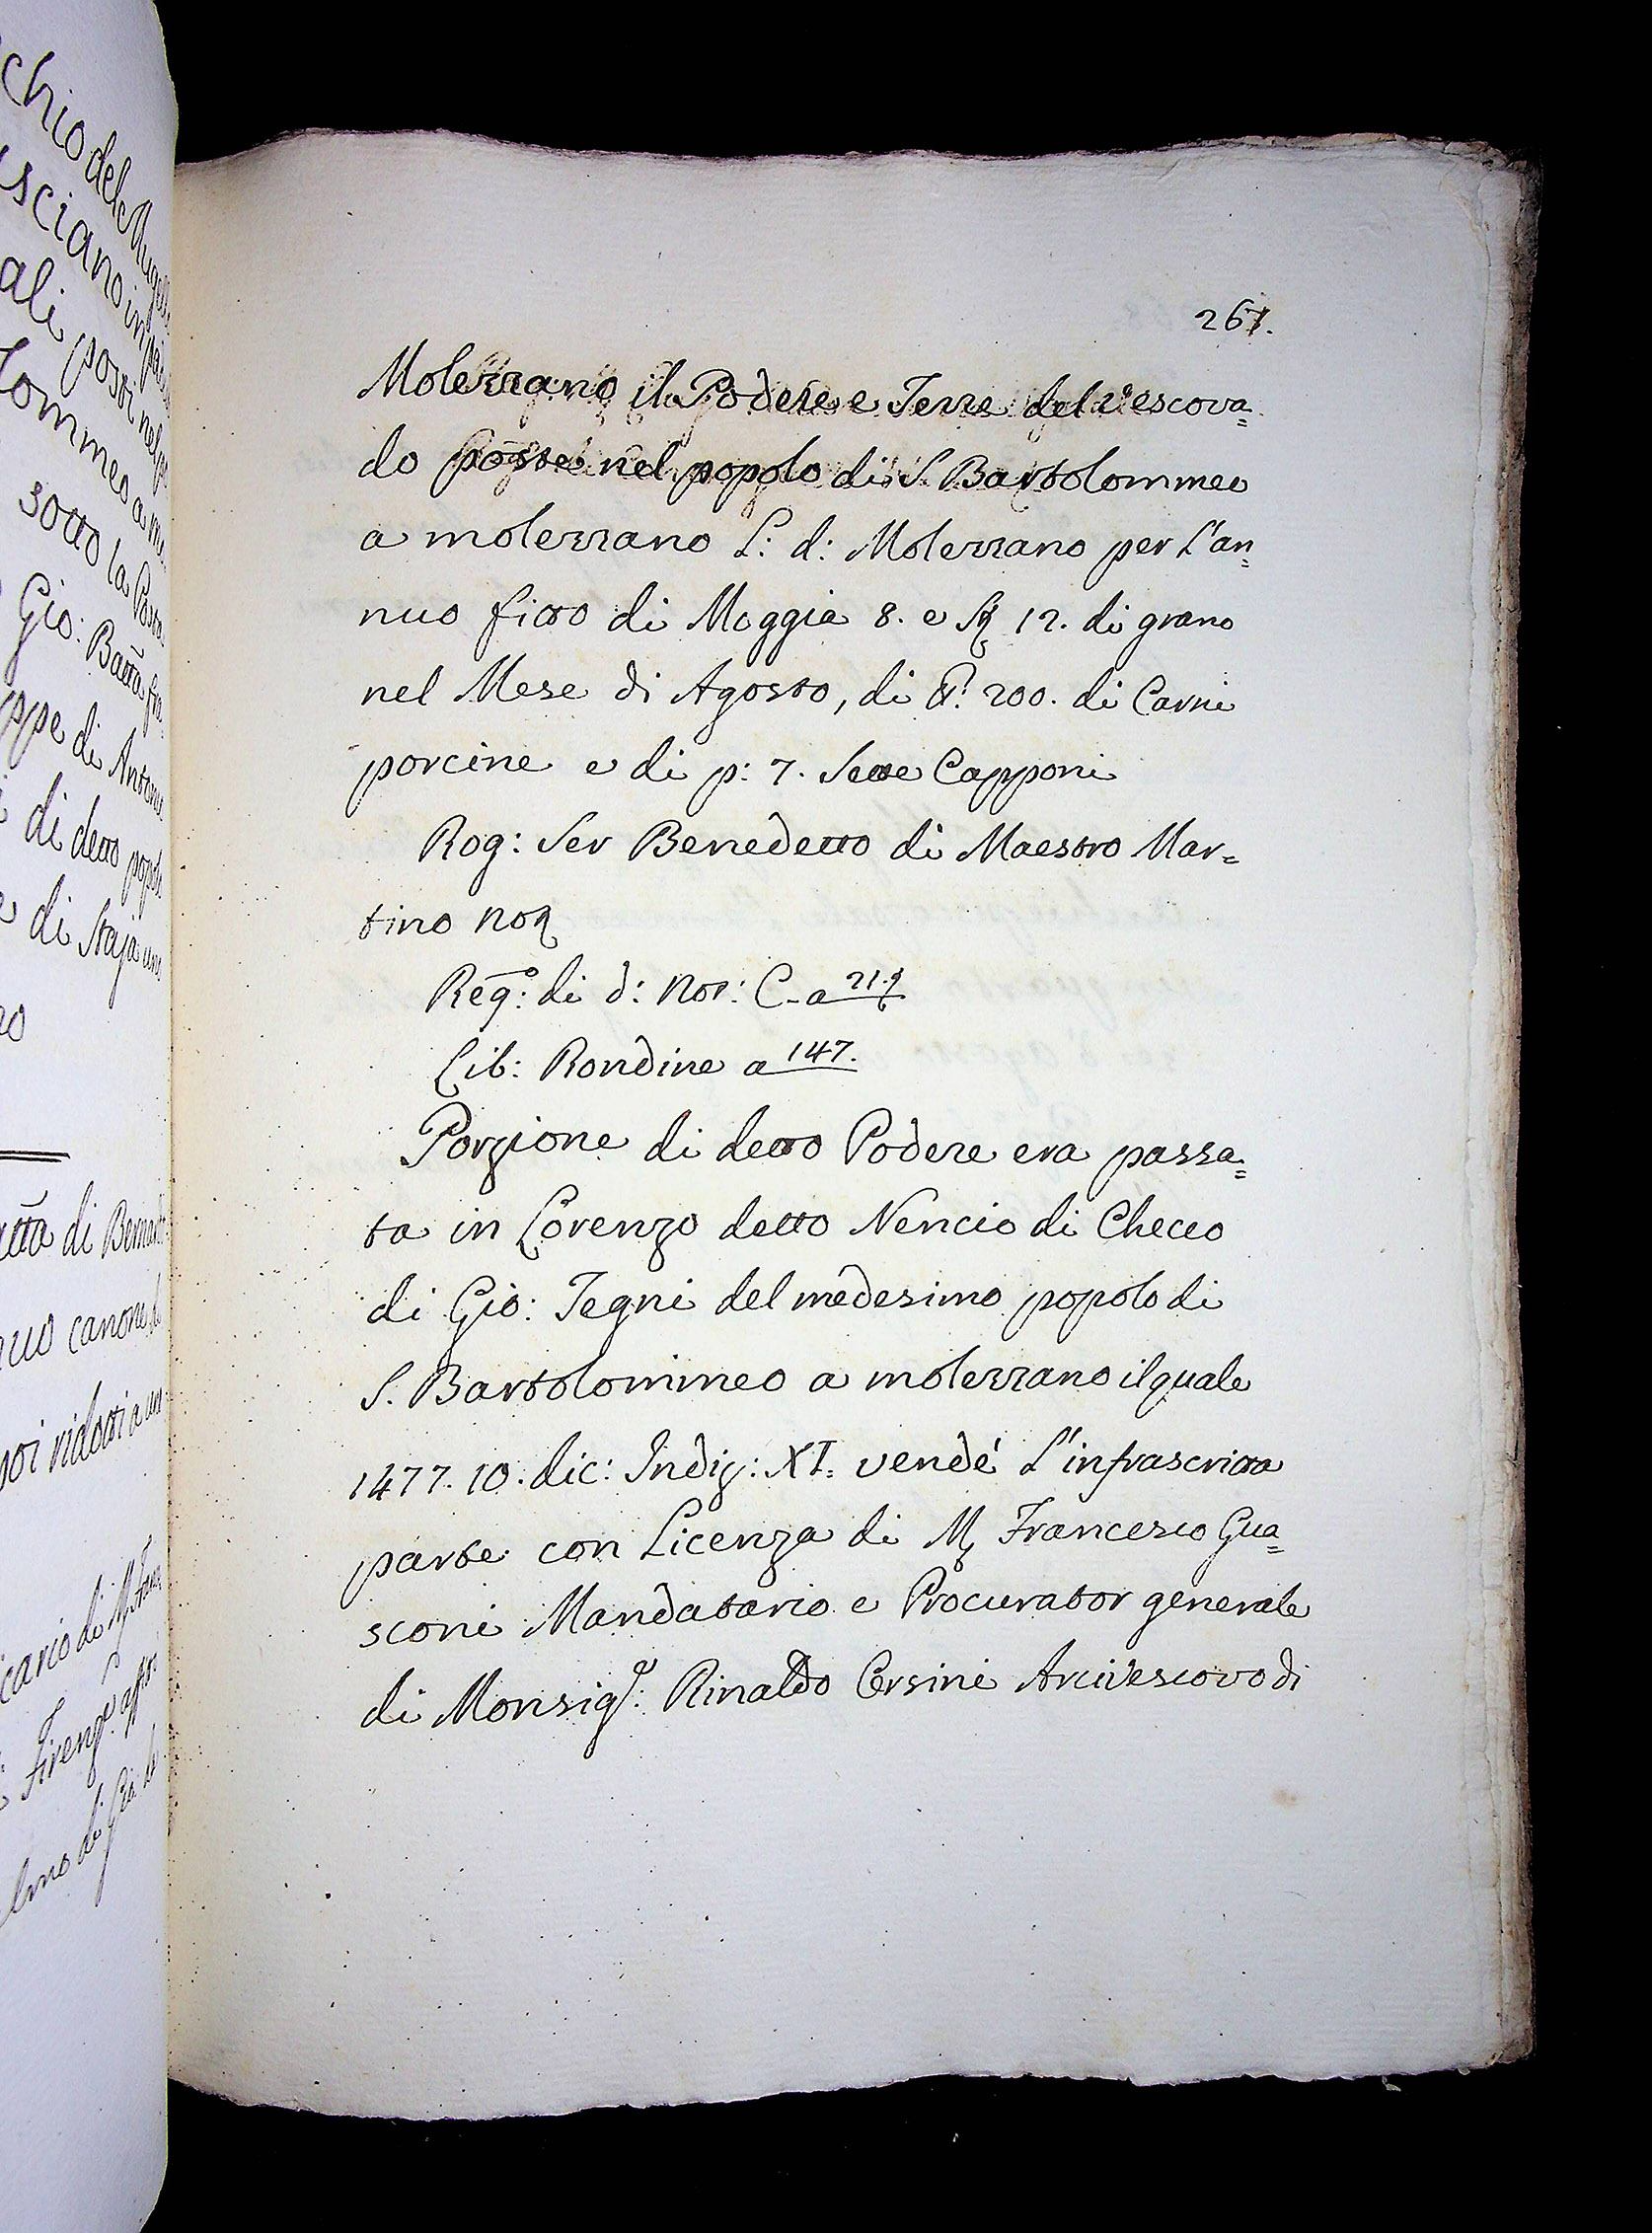 267.
Molezzano il Podere e Terre del Vescova=
do poste nel popolo di S. Bartolommeo
a molezzano L: d: Molezzano per L'an=
nuo fitto di Moggia 8. e St 12. di grano
nel Mese di Agosto, di 200. di Carni
porcine e di p: 7. Sette Capponi
Rog: Ser Benedetto di Maestro Mar=
tino Not
Reg.o: di d: Not: C-a 21.
Lib: Rondine a 147.
Porzione di detto Podere era passa=
ta in Lorenzo detto Nencio di Checco
di Gio: Tegni del medesimo popolo di
S. Bartolommeo a molezzano il quale
1477. 10. dic: Indiz: XI. vendé L'infrascritta
parte con Licenza di M Francesco Gua=
sconi Mandatario e Procurator generale
di Monsig.r: Rinaldo Orsini Arcivescovo di
chio del Mugello
sciano in
ali posti nel
tommeo a
sotto la Posta
Gio: Batta
ppe di Antonio
di detto popolo
di Staja uno
no
atta di Bernardo
nuo canone
poi ridotti a
cario di M
Firenze
lmo di Gio: